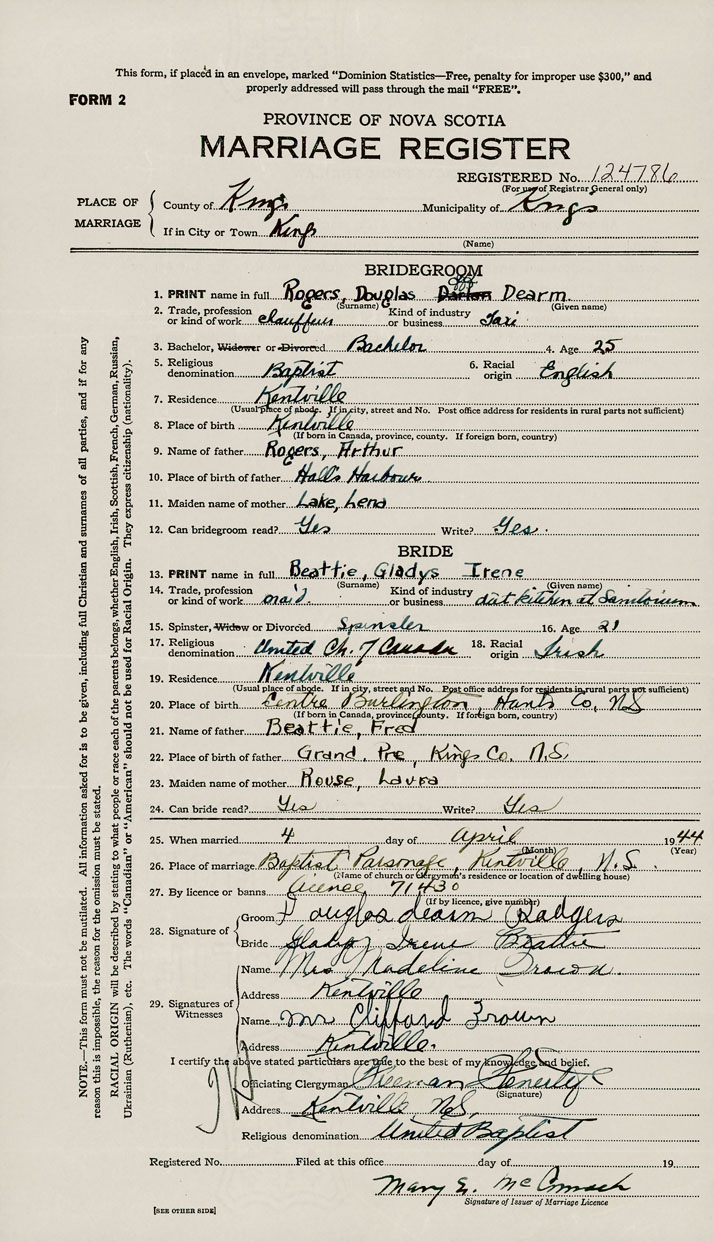 This form, if placed in an envelope, marked "Dominion Statistics—Free, penalty for improper use $300," and
properly addressed will pass through the mail "FREE".
FORM 2
PROVINCE OF NOVA SCOTIA
MARRIAGE REGISTER
REGISTERED No. 124786
(For use of Registrar General only)
PLACE OF MARRIAGE
County of Kings Municipality of Kings
If in City or Town Kings
(Name)
BRIDEGROOM
1. PRINT name in full Rogers, Douglas Dearm
(Surname) (Given name)
2. Trade, profession or kind of work chauffeur Kind of industry or business Taxi
3. Bachelor, Widower or Divorced Bachelor 4. Age 25
5. Religious denomination Baptist 6. Racial origin English
7. Residence Kentville
(Usual place of abode. If in city, street and No. Post office address for residents in rural parts not sufficient)
8. Place of birth Kentville
(If born in Canada, province, county. If foreign born, country)
9. Name of father Rogers, Arthur
10. Place of birth of father Hall's Harbour
11. Maiden name of mother Lake, Lena
12. Can bridegroom read? Yes Write? Yes.
BRIDE
13. PRINT name in full Beattie, Gladys Irene
(Surname) (Given name)
14. Trade, profession or kind of work maid Kind of industry or business diet kitchen at
15. Spinster, Widow or Divorced Spinster 16. Age 21
17. Religious denomination United Ch. of Canada 18. Racial origin Irish
19. Residence Kentville
(Usual place of abode. If in city, street and No. Post office address for residents in rural parts not sufficient)
20. Place of birth Centre Burlington, Hants Co, N.S
(If born in Canada, province, county. If foreign born, country)
21. Name of father Beattie, Fred
22. Place of birth of father Grand. Pre, Kings Co. N.S.
23. Maiden name of mother Rouse, Laura
24. Can bride read? Yes Write? Yes
25. When married 4 day of April 1944
(Month) (Year)
26. Place of marriage Baptist Parsonage, Kentville, N.S.
(Name of church or clergyman's residence or location of dwelling house)
27. By licence or banns licence 71430
(If by licence, give number)
28. Signature of
Groom Douglas dearm Rodgers
Bride Gladys Irene Beattie
29. Signatures of Witnesses
Name Mrs Madeline Brown
Address Kentville
Name Mr Clifford Brown
Address Kentville.
I certify the above stated particulars are true to the best of my knowledge and belief.
Officiating Clergyman Freeman Fenerty
(Signature)
Address Kentville N.S.
Religious denomination United Baptist
Registered No. Filed at this office day of 19
Mary E. McCormack
Signature of Issuer of Marriage Licence
[SEE OTHER SIDE]
NOTE.—This form must not be mutilated. All information asked for is to be given, including full Christian and surnames of all parties, and if for any
reason this is impossible, the reason for the omission must be stated.
RACIAL ORIGIN will be described by stating to what people or race each of the parents belongs, whether English, Irish, Scottish, French, German, Russian,
Ukrainian (Ruthenian), etc. The words "Canadian" or "American" should not be used for Racial Origin. They express citizenship (nationality).